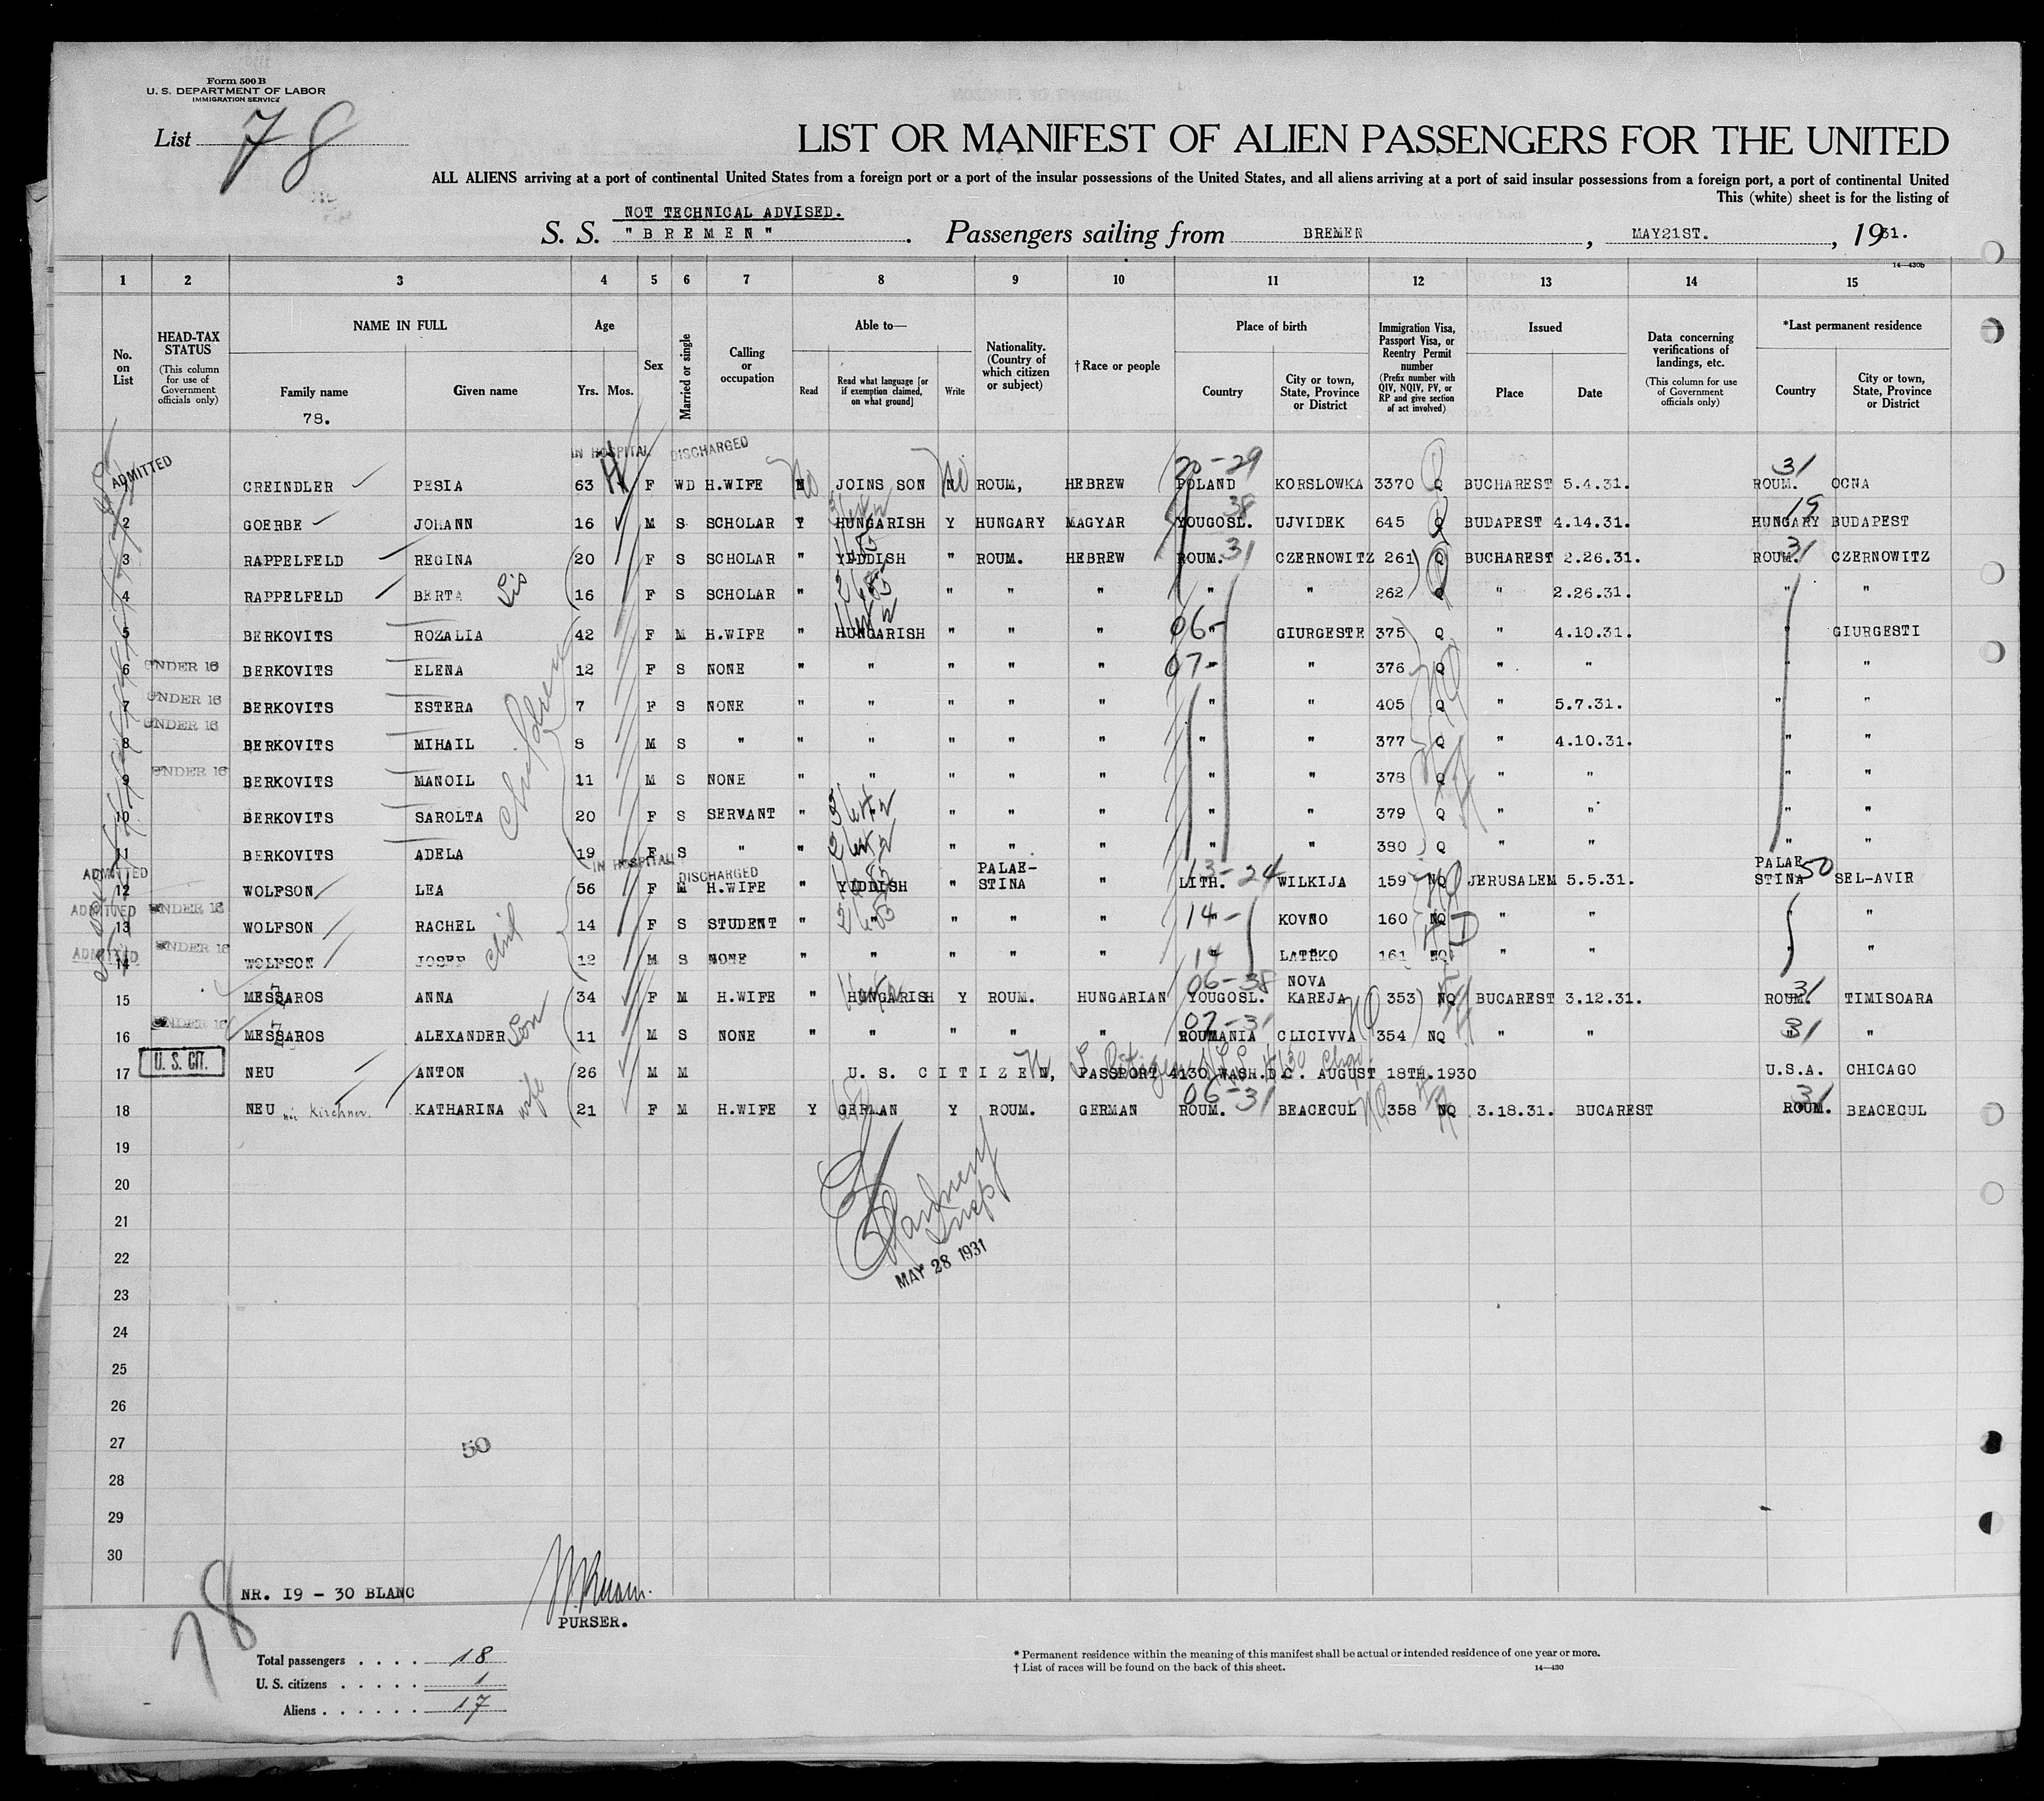 Form 500 B
U. S. DEPARTMENT OF LABOR
IMMIGRATION SERVICE
List 78
LIST OR MANIFEST OF ALIEN PASSENGERS FOR THE UNITED
ALL ALIENS arriving at a port of continental United States from a foreign port or a port of the insular possessions of the United States, and all aliens arriving at a port of said insular possessions from a foreign port, a port of continental United
This (white) sheet is for the listing of
NOT TECHNICAL ADVISED.
S. S. "BREMEN". Passengers sailing from BREMEN, MAY21ST., 1931.
14—430b
1 2 3 4 5 6 7 8 9 10 11 12 13 14 15
No. on List
HEAD-TAX STATUS (This column for use of Government officials only)
NAME IN FULL Family name Given name
78.
Age Yrs. Mos.
Sex
Married or single
Calling or occupation
Able to— Read Read what language [or if exemption claimed, on what ground] Write
Nationality. (Country of which citizen or subject)
† Race or people
Place of birth Country City or town, State, Province or District
Immigration Visa, Passport Visa, or Reentry Permit number (Prefix number with QIV, NQIV, PV, or RP and give section of act involved)
Issued Place Date
Data concerning verifications of landings, etc. (This column for use of Government officials only)
*Last permanent residence Country City or town, State, Province or District
ADMITTED IN HOSPITAL DISCHARGED 20-29 31
CREINDLER PESIA 63 F WD H.WIFE No JOINS SON No ROUM, HEBREW POLAND KORSLOWKA 3370 Q BUCHAREST 5.4.31. ROUM. OCNA
38 19
2 GOERBE JOHANN 16 M S SCHOLAR Y HUNGARISH Y HUNGARY MAGYAR YOUGOSL. UJVIDEK 645 Q BUDAPEST 4.14.31. HUNGARY BUDAPEST
3 RAPPELFELD REGINA 20 F S SCHOLAR " YIDDISH " ROUM. HEBREW ROUM. 31 CZERNOWITZ 261 Q BUCHAREST 2.26.31. ROUM. 31 CZERNOWITZ
4 RAPPELFELD BERTA Sis 16 F S SCHOLAR " " " " " " 262 Q " 2.26.31. " "
5 BERKOVITS ROZALIA 42 F M H.WIFE " HUNGARISH " " " 06- " GIURGESTE 375 Q " 4.10.31. " GIURGESTI
6 UNDER 16 BERKOVITS ELENA 12 F S NONE " " " " " 07- " " 376 Q " " " "
7 UNDER 16 BERKOVITS ESTERA 7 F S NONE " " " " " " " 405 Q " 5.7.31. " "
8 UNDER 16 BERKOVITS MIHAIL 8 M S " " " " " " " " 377 Q " 4.10.31. " "
9 UNDER 16 BERKOVITS MANOIL 11 M S NONE " " " " " " " 378 Q " " " "
children
10 BERKOVITS SAROLTA 20 F S SERVANT " " " " " " 379 Q " " " "
11 BERKOVITS ADELA 19 F S " " " " " " " 380 Q " " " "
ADMITTED IN HOSPITAL DISCHARGED 13-24
12 WOLFSON LEA 56 F M H.WIFE " YIDDISH " PALAE-STINA " LITH. WILKIJA 159 NQ JERUSALEM 5.5.31. PALAE STINA 50 SEL-AVIR
13 ADMITTED UNDER 16 WOLFSON RACHEL 14 F S STUDENT " " " " " 14- " KOVNO 160 NQ " " " "
14 ADMITTED UNDER 16 WOLFSON JOSEF 12 M S NONE " " " " " 14 " LATRKO 161 NQ " " " "
15 MESSAROS ANNA 34 F M H.WIFE " HUNGARISH Y ROUM. HUNGARIAN 06-38 YOUGOSL. NOVA KAREJA 353 NQ BUCAREST 3.12.31. ROUM. 31 TIMISOARA
16 UNDER 16 MESSAROS ALEXANDER Son 11 M S NONE " " " " " 07-31 ROUMANIA CLICIVVA 354 NQ " " " 31 "
17 U. S. CIT. NEU ANTON 26 M M U. S. CITIZEN, PASSPORT 4130 WASH.D.C. AUGUST 18TH.1930 U.S.A. CHICAGO
18 NEU née Kirchner. KATHARINA wife 21 F M H.WIFE Y GERMAN Y ROUM. GERMAN 06-31 ROUM. BEACECUL 358 NQ 3.18.31. BUCAREST ROUM. 31 BEACECUL
19
20
21
Insp
22
MAY 28 1931
23
24
25
26
27
50
28
29
30
78
NR. 19 - 30 BLANC
PURSER.
Total passengers . . . . 18
U. S. citizens . . . . . 1
Aliens . . . . . . 17
* Permanent residence within the meaning of this manifest shall be actual or intended residence of one year or more.
† List of races will be found on the back of this sheet. 14—430